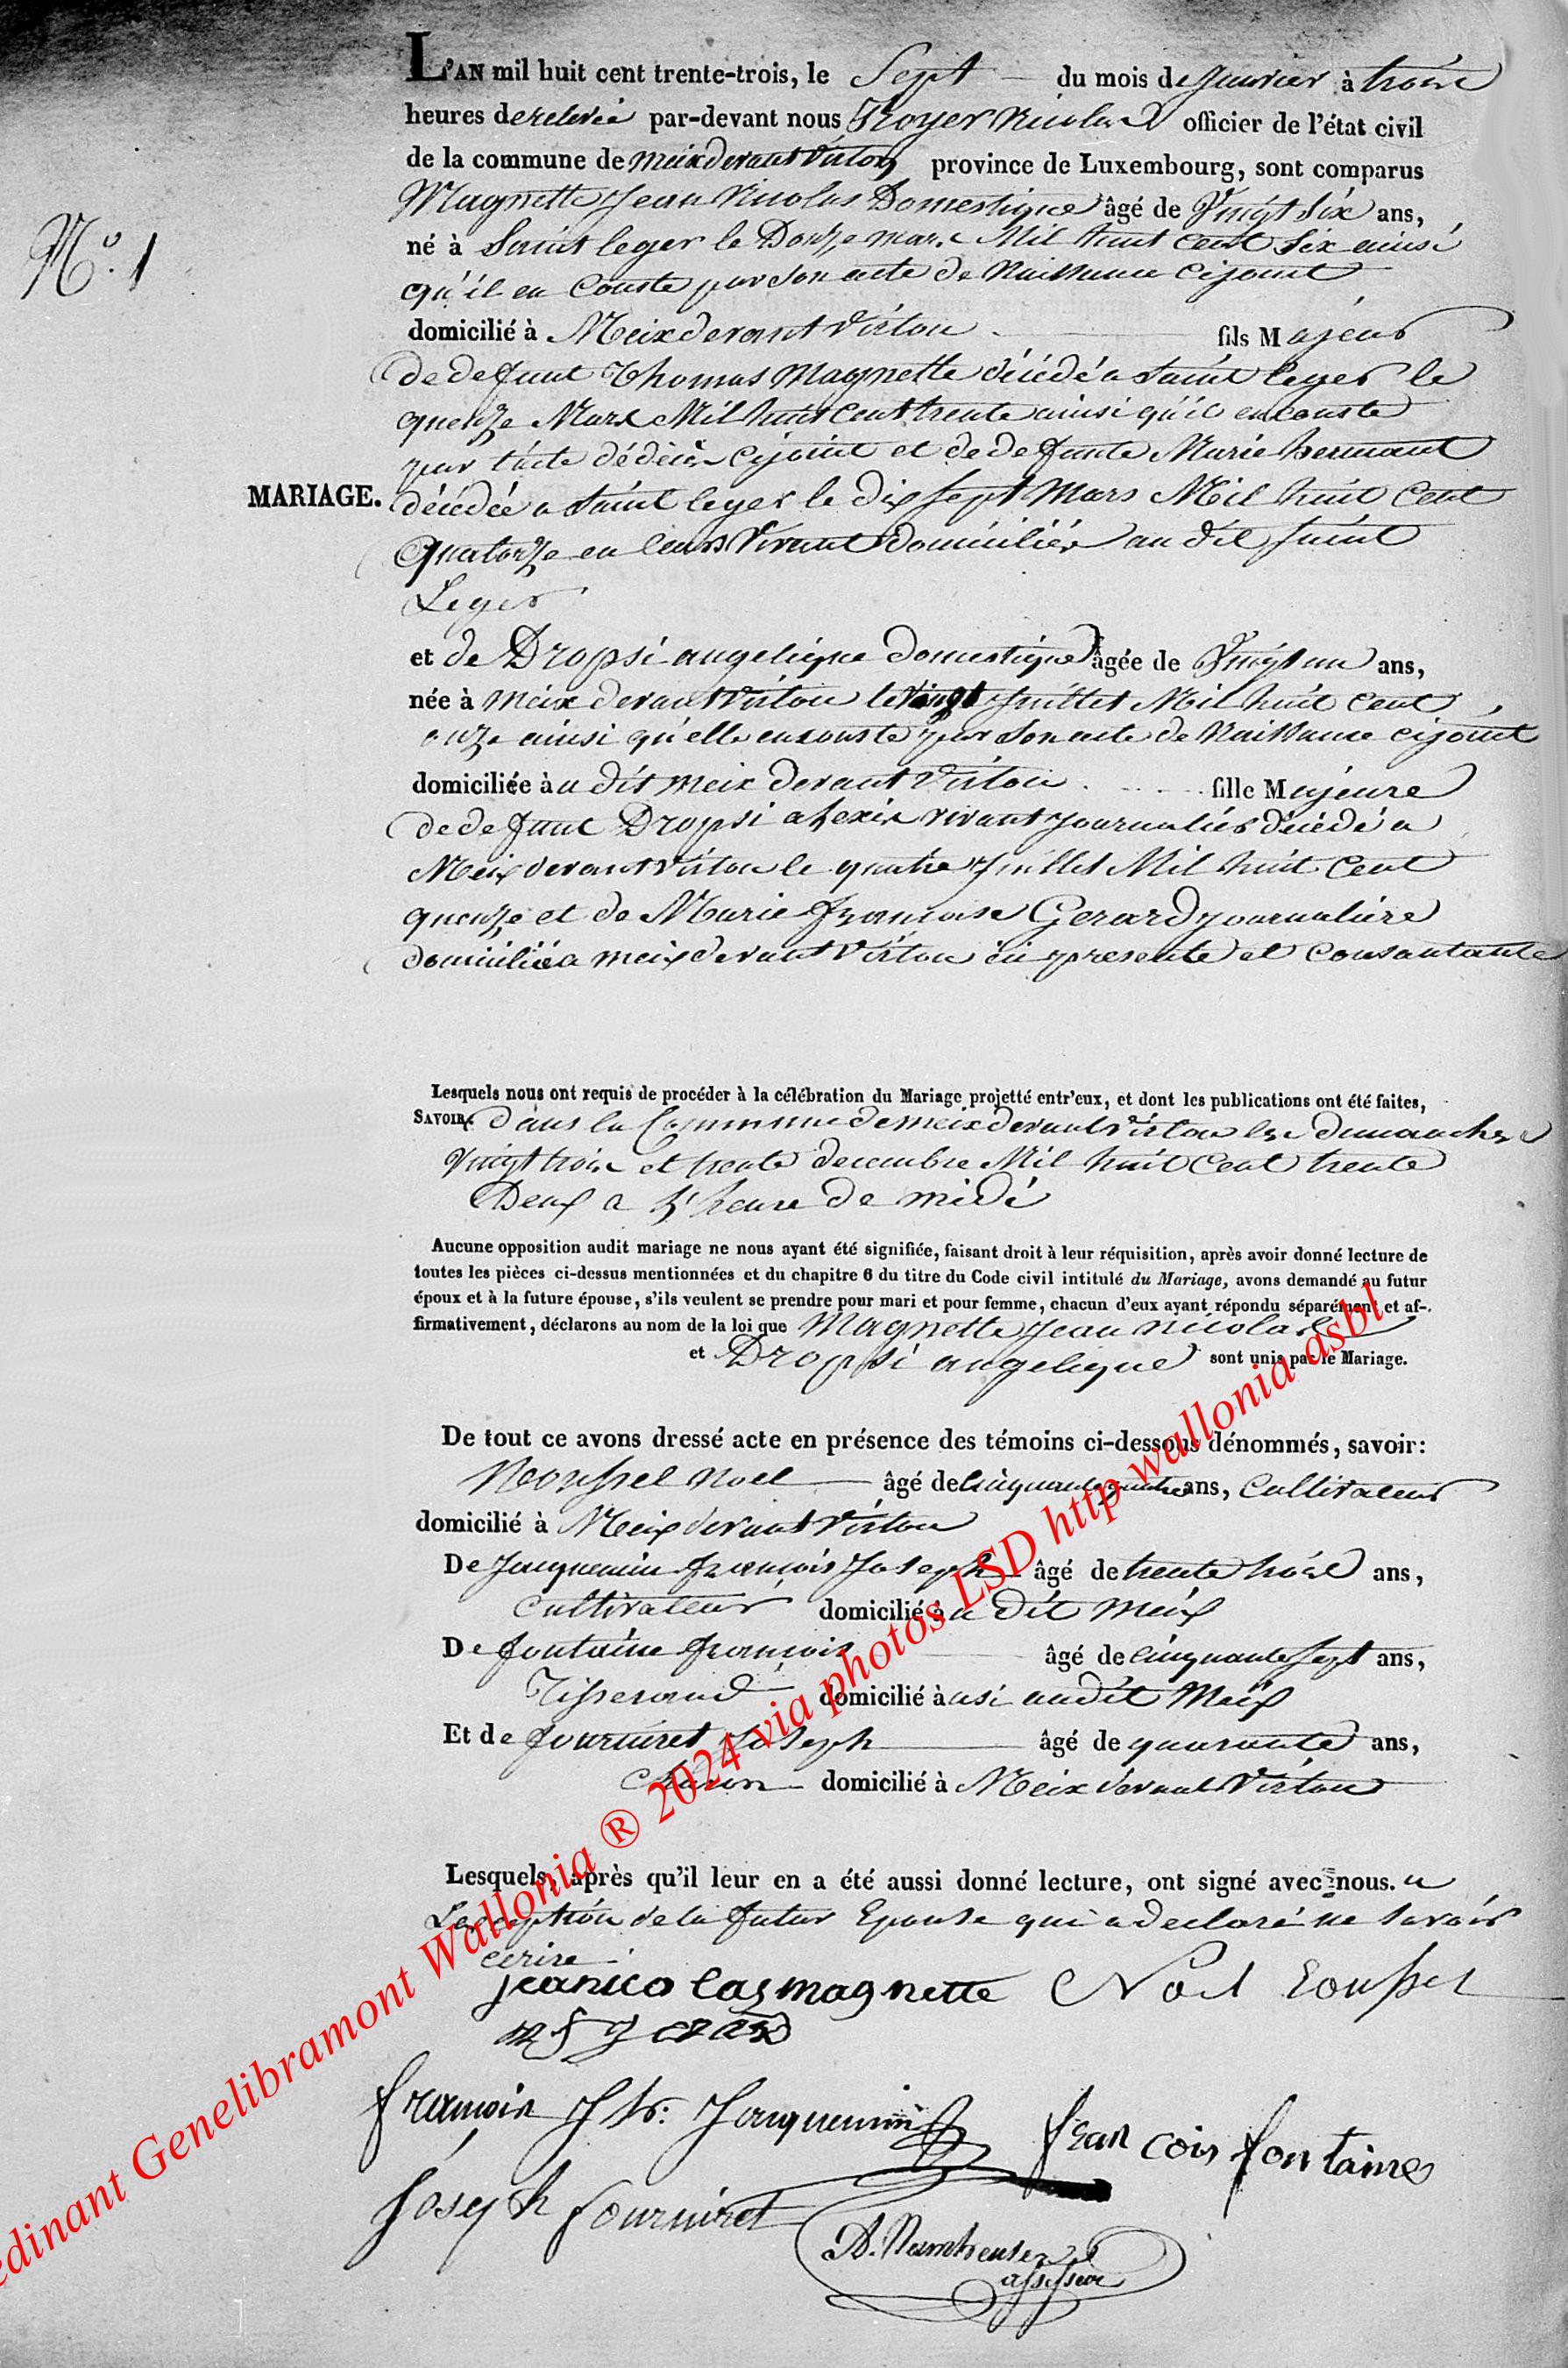 L'AN mil huit cent trente-trois, le Sept du mois de Janvier à trois
heures de relevée par-devant nous Troyer Nicolas officier de l'état civil
de la commune de meix devant Virton province de Luxembourg, sont comparus
Magnette Jean Nicolas Domestique âgé de Vingt Six ans,
né à Saint leger le Douze mars Mil huit cent Six ainsi
N° 1
qu'il en Conste par Son acte de Naissance cijoint
domicilié à Meix devant Virton fils Majeur
de defunt Thomas Magnette décédé a Saint leger le
quenze Mars Mil huit Cent trente ainsi qu'il en conste
par l'acte dédécès cijoint et de defunte Marie hermant
MARIAGE. décédée a Saint leger le dix Sept Mars Mil huit Cent
Quatorze en leurs Vivant domiciliés au dit Saint
Leger
et de Dropsi angelique domestique âgée de Vingt un ans,
née à meix devant Virton le Vingt Juillet Mil huit Cent
onze ainsi qu'elle en conste par Son acte de Naissance cijoint
domiciliée à u dit meix devant Virton fille Majeure
de defunt Dropsi alexis vivant Journalier décédé a
Meix devant Virton le quatre Juillet Mil huit Cent
quenze et de Marie françoise Gerard journalière
domiciliée a meix devant Virton ici presente et consantante
Lesquels nous ont requis de procéder à la célébration du Mariage projetté entr'eux, et dont les publications ont été faites,
SAVOIR: dans la Commune de meix devant Virton les dimanches
Vingt trois et trente decembre Mil huit Cent trente
Deux a l'heure de midi
Aucune opposition audit mariage ne nous ayant été signifiée, faisant droit à leur réquisition, après avoir donné lecture de
toutes les pièces ci-dessus mentionnées et du chapitre 6 du titre du Code civil intitulé du Mariage, avons demandé au futur
époux et à la future épouse, s'ils veulent se prendre pour mari et pour femme, chacun d'eux ayant répondu séparément et af-
firmativement, déclarons au nom de la loi que Magnette Jean nicolas
et Dropsi angelique sont unis par le Mariage.
De tout ce avons dressé acte en présence des témoins ci-dessous dénommés, savoir:
Roussel Noel âgé de Cinquante quatre ans, Cultivateur
domicilié à Meix devant Virton
De Jacquemin françois Joseph âgé de trente trois ans,
Cultivateur domicilié à u dit Meix
De fontaine françois âgé de Cinquante Sept ans,
Tisserand domicilié à usi audit Meix
Et de fourniret Joseph âgé de quarante ans,
domicilié à Meix devant Virton
Lesquels, après qu'il leur en a été aussi donné lecture, ont signé avec nous. a
Lexception de la futur Epouse qui a declaré ne Savoir
ecrire
jeanico las magnette Noel roussel
m f gerard
françois Jh: Jacquemin
fran cois fontaines
Joseph fourniret
assesseur
edinant Genelibramont Wallonia ® 2024 via photos LSD http wallonia asbl